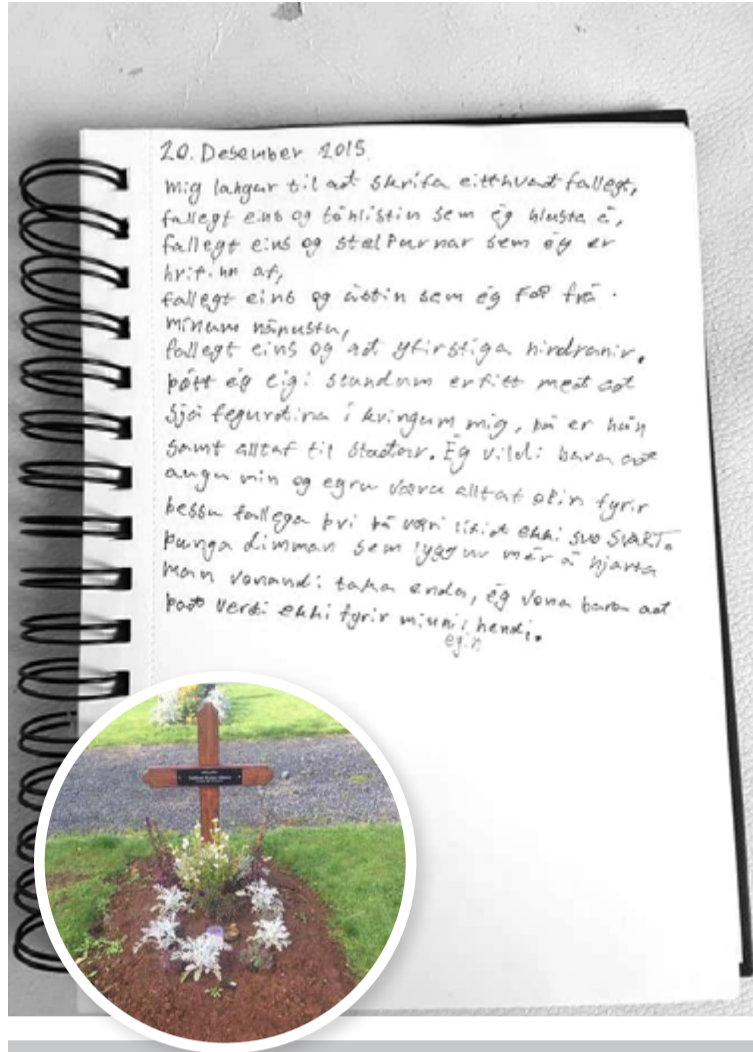 20. Desember 2015.
mig langur til að skrifa eitthvað fallegt,
fallegt eins og tónlistin sem ég hlusta á,
fallegt eins og stelpurnar sem ég er
hrifinn af,
fallegt eins og ástin sem ég fæ frá
mínum nánustu,
fallegt eins og að yfirstíga hindranir.
þótt ég eigi stundum erfitt með að
sjá fegurðina í kringum mig, þá er hún
samt alltaf til staðar. Ég vildi bara að
augu mín og eyru væru alltaf opin fyrir
þessu fallega því þá væri lífið ekki svo SVART.
þunga dimman sem lyggur mér á hjarta
man vonandi taka enda, ég vona bara að
það verði ekki fyrir minni hendi.
eigin